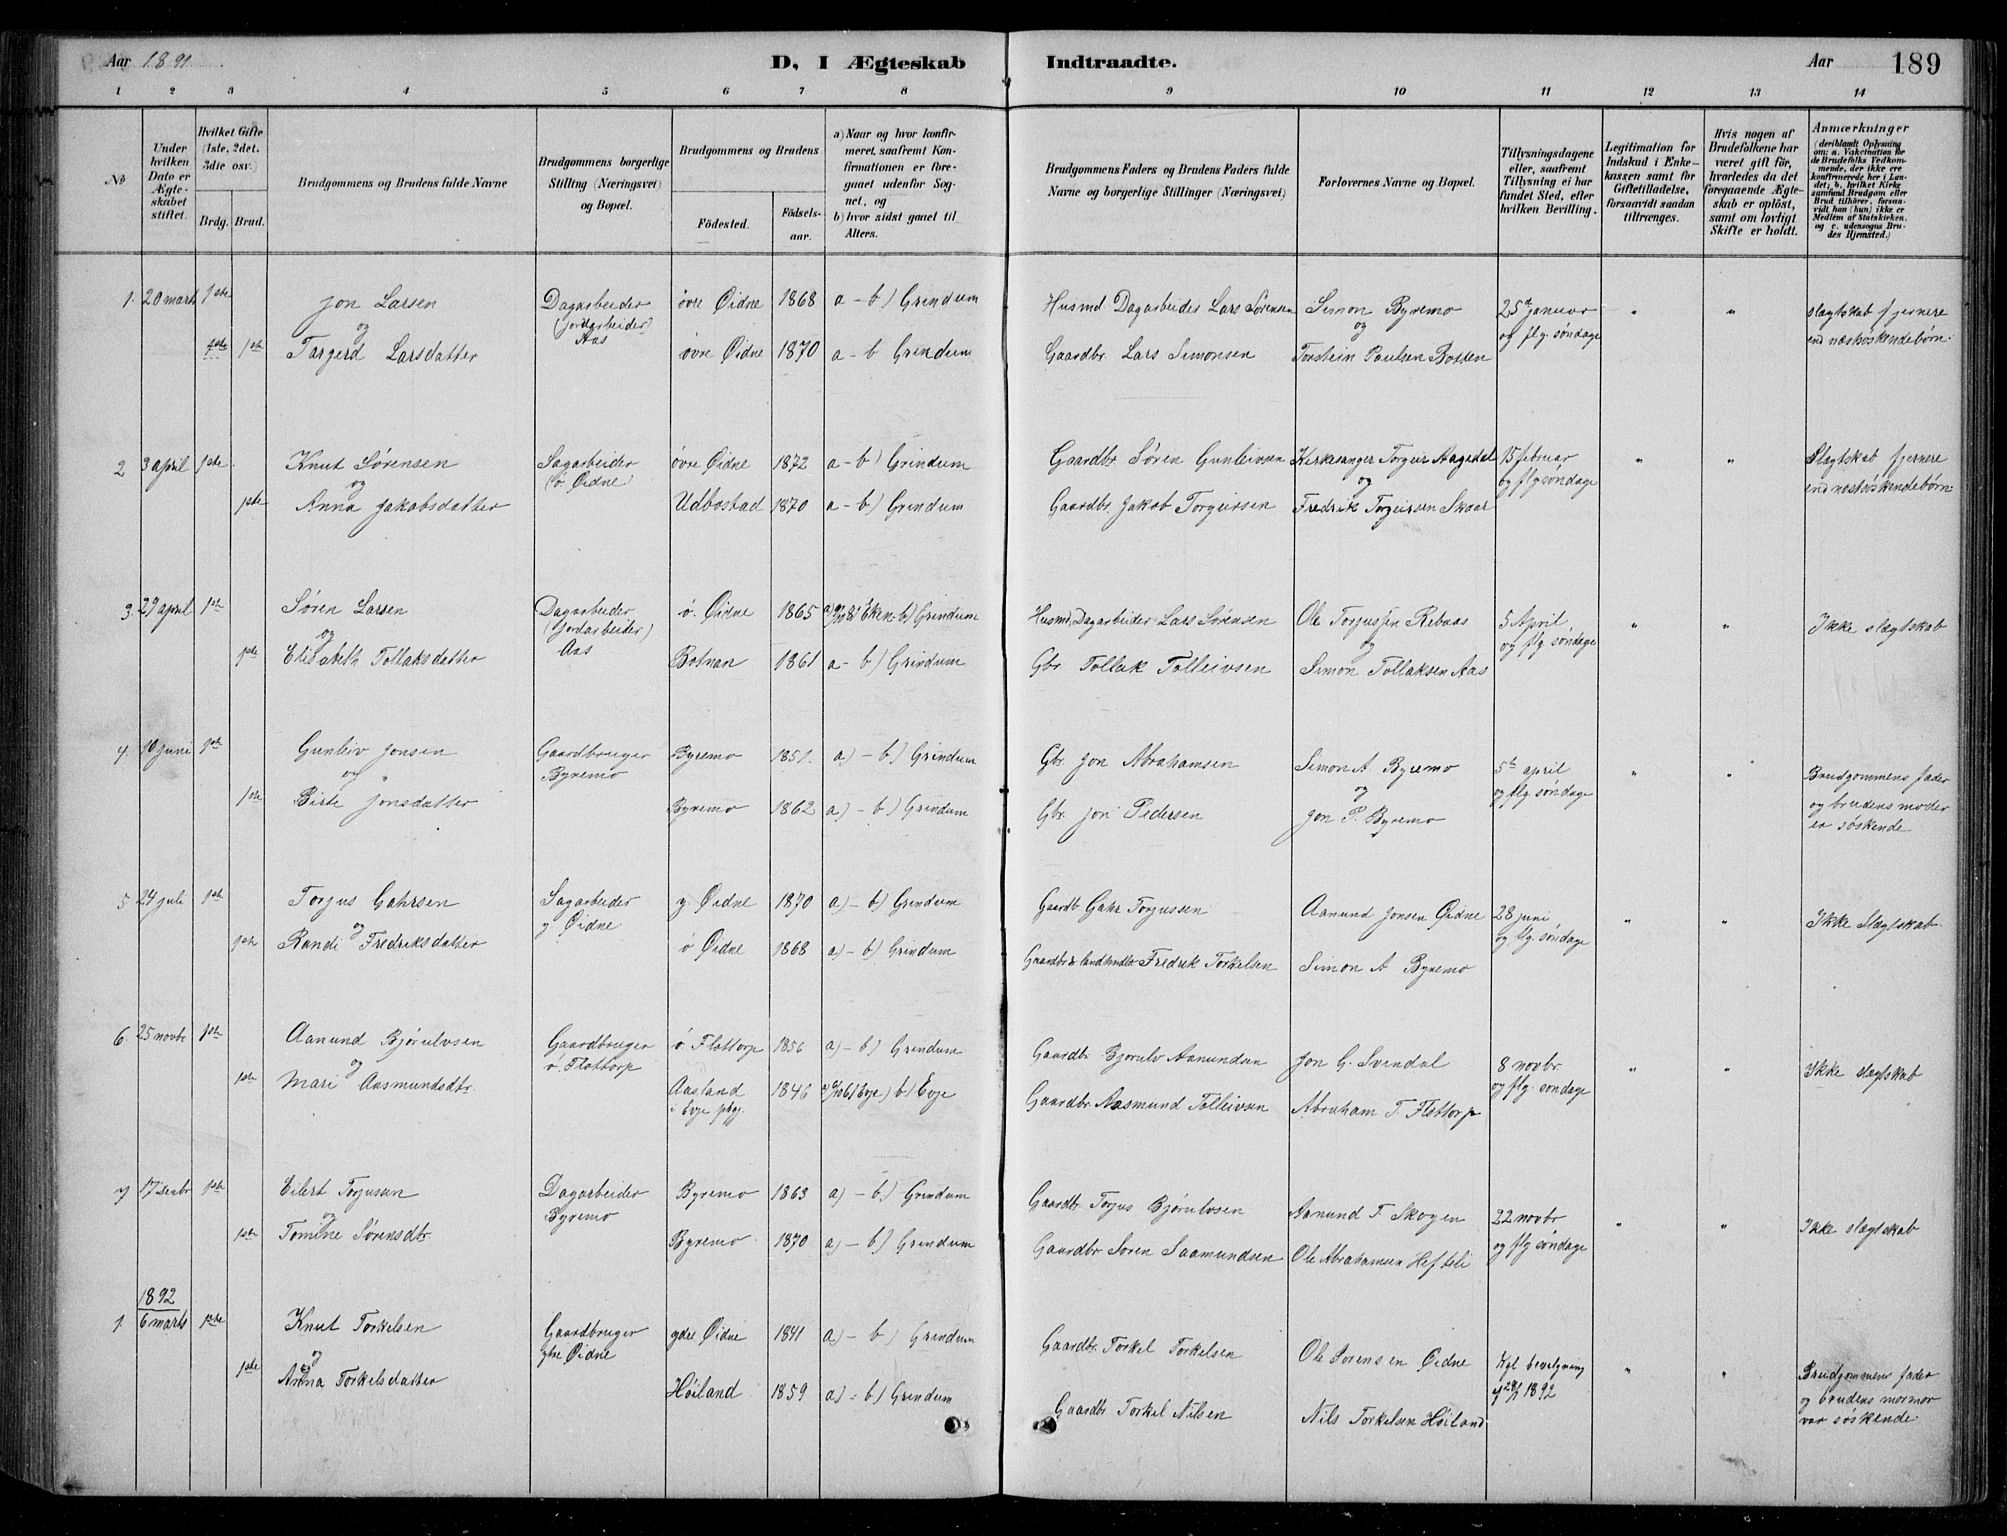 Aar 1891.
D. I Ægteskab
Indtraadte.
Aar
189
1 2 3 4 5 6 7 8 9 10 11 12 13 14
No
Under hvilken Dato er Ægteskabet stiftet.
Hvilket Gifte (1ste, 2det, 3die osv.)
Brdg. Brud.
Brudgommens og Brudens fulde Navne
Brudgommens borgerlige Stilling (Næringsvei) og Bopæl.
Brudgommens og Brudens
Fødested.
Fødselsaar.
a) Naar og hvor konfirmeret, saafremt Konfirmationen er foregaaet udenfor Sognet, og
b) hvor sidst gaaet til Alters.
Brudgommens Faders og Brudens Faders fulde Navne og borgerlige Stillinger (Næringsvei)
Forlovernes Navne og Bopæl.
Tillysningsdagene eller, saafremt Tillysning ei har fundet Sted, efter hvilken Bevilling.
Legitimation for Indskud i Enkekassen samt for Giftetilladelse, forsaavidt saadan tiltrænges.
Hvis nogen af Brudefolkene har været gift før, hvorledes da det foregaaende Ægteskab er opløst, samt om lovligt Skifte er holdt.
Anmærkninger (deriblandt Oplysning om: a. Vakcination for de Brudefolks Vedkommende, der ikke ere konfirmerede her i Landet; b. hvilket Kirkesamfund Brudgom eller Brud tilhører, forsaavidt han (hun) ikke er Medlem af Statskirken, og c. udensogns Brudes Hjemsted.)
1. 20 marts 1ste Jon Larsen Dagarbeider øvre Øidne 1868 a - b) Grindum Husmd. Dagarbeider Lars Sørensen Simon Byremo 25de januar " " slægtskab fjernere
og (jordarbeider) og og flg. søndage
1ste 1ste Targerd Larsdatter Aas øvre Øidne 1870 a - b Grindum Gaardbr. Lars Simonsen Torstein Paulsen Botten end næstsøskendebørn.
2 3 april 1ste Knut Sørensen Sagarbeider øvre Øidne 1872 a - b) Grindum Gaardbr Søren Gunleivsen Kirkesanger Torgeir Aagedal 15 februar " " Slægtskab fjernere
og (ø. Øidne) og og flg søndage
1ste Anna Jakobsdatter Udbostad 1870 a - b) Grindum Gaardbr. Jakob Torgeirsen Fredrik Torgeirsen Skaar end næstsøskendebørn
3. 29 april 1ste Søren Larsen Dagarbeider ø. Øidne 1865 Eken. b) Grindum Husmd, Dagarbeider Lars Sørensen Ole Torjussen Rebaas 5 April " " Ikke slægtskab
og (jordarbeider) og og flg søndage
1ste Elisabeth Tollaksdatter Aas Botnan 1861 a - b) Grindum Gbr Tollak Tolleivsen Simon Tollaksen Aas
4. 10 juni 1ste Gunleiv Jonsen Gaardbruger Byremo 1851. a) - b) Grindum Gbr Jon Abrahamsen Simon A Byremo 5te april " " Brudgommens fader
og Byremo og og flg søndage og brudens moder
1ste Birte Jonsdatter Byremo 1862 a) - b) Grindum Gbr Jon Pedersen Jon P. Byremo er søskende
5 24 juli 1ste Torjus Gahrsen Sagarbeider y. Øidne 1870 a) - b) Grindum Gaardb Gahr Torjussen Aanund Jonsen Øidne 28 juni " " Ikke Slægtskab.
og y Øidne og flg. søndage
1ste Randi Fredriksdatter ø Øidne 1868 a) - b) Grindum Gaardbr & landhndlr Fredrik Torkelsen Simon A Byremo
6. 25 novbr 1ste Aanund Bjørulvsen Gaardbruger ø. Flottorp 1856 a) - b) Grindum Gaardbr Bjørulv Aanundsen Jon G. Svendal 8 novbr " " Ikke slægtskab
og ø. Flottorp og flg. søndage
1ste Mari Aasmundsdtr. Aasland i Evje pbg. 1846 Evje) b) Evje Gaardbr Aasmund Tolleivsen Abraham T. Flottorp
7 17 Decbr 1ste Eilert Torjussen Dagarbeider Byremo 1863 a) - b) Grindum Gaardbr. Torjus Bjørulvsen Aanund T. Skogen 22 novbr " " Ikke slægtskab
og Byremo og flg søndage
1ste Tomine Sørensdtr Byremo 1870 a) - b) Grindum Gaardbr Søren Saamundsen Ole Abrahamsen Hefteli
1892
1. 6 marts 1ste Knut Torkelsen Gaardbruger ydre Øidne 1841 a) - b) Grindum Gaardbr. Torkel Torkelsen Ole Sørensen Øidne Kgl bevilgning " " Brudgommens fader
og ytre Øidne 1892 og brudens mormor
1ste Anna Torkelsdatter Høiland 1859 a) - b) Grindum Gaardbr Torkel Nilsen Nils Torkelsen Høiland var søskende.